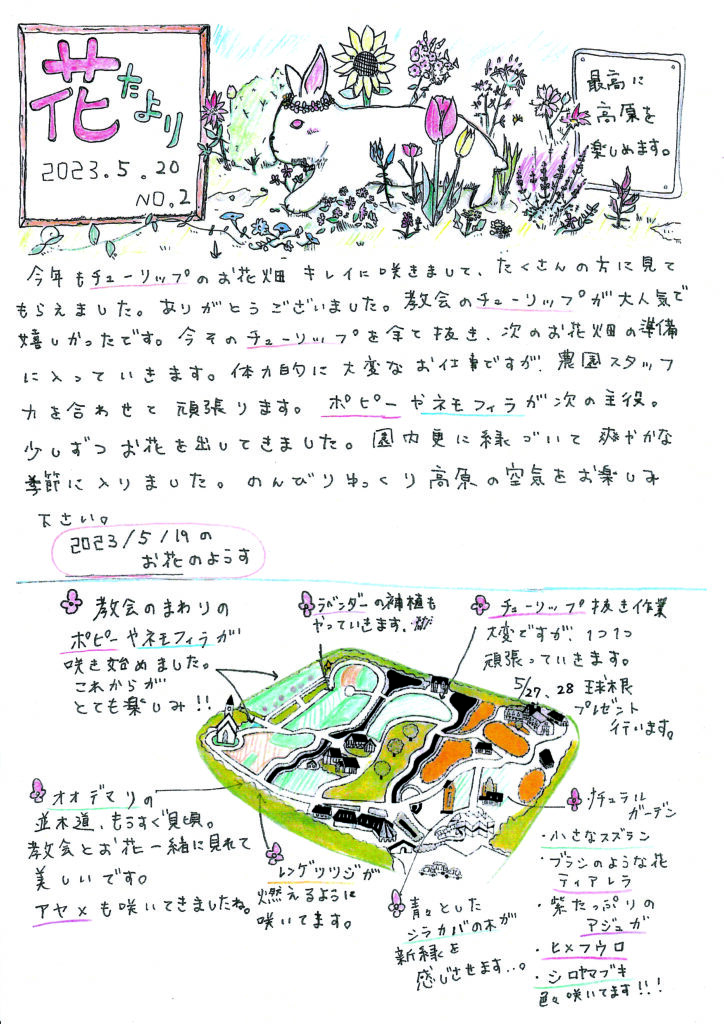 花たより
2023.5.20
NO.2
最高に
高原を
楽しめます。
今年もチューリップのお花畑 キレイに咲きまして、たくさんの方に見て
もらえました。ありがとうございました。教会のチューリップが大人気で
嬉しかったです。今そのチューリップを全て抜き、次のお花畑の準備
に入っていきます。体力的に大変なお仕事ですが、農園スタッフ
力を合わせて頑張ります。ポピーやネモフィラが次の主役。
少しずつお花を出してきました。園内更に緑づいて爽やかな
季節に入りました。のんびりゆっくり高原の空気をお楽しみ
下さい。
2023/5/19の
お花のようす
教会のまわりの
ポピーやネモフィラが
咲き始めました。
これからが
とても楽しみ!!
ラベンダーの補植も
やっていきます。
チューリップ抜き作業
大変ですが、1つ1つ
頑張っていきます。
5/27、28 球根
プレゼント
行います。
オオデマリの
並木道、もうすぐ見頃。
教会とお花一緒に見れて
美しいです。
アヤメも咲いてきましたね。
レンゲツツジが
燃えるように
咲いてます。
青々とした
シラカバの木が
新緑を
感じさせます...。
ナチュラル
ガーデン
・小さなスズラン
・ブラシのような花
ティアレラ
・紫たっぷりの
アジュガ
・ヒメフウロ
・シロヤマブキ
色々咲いてます!!!